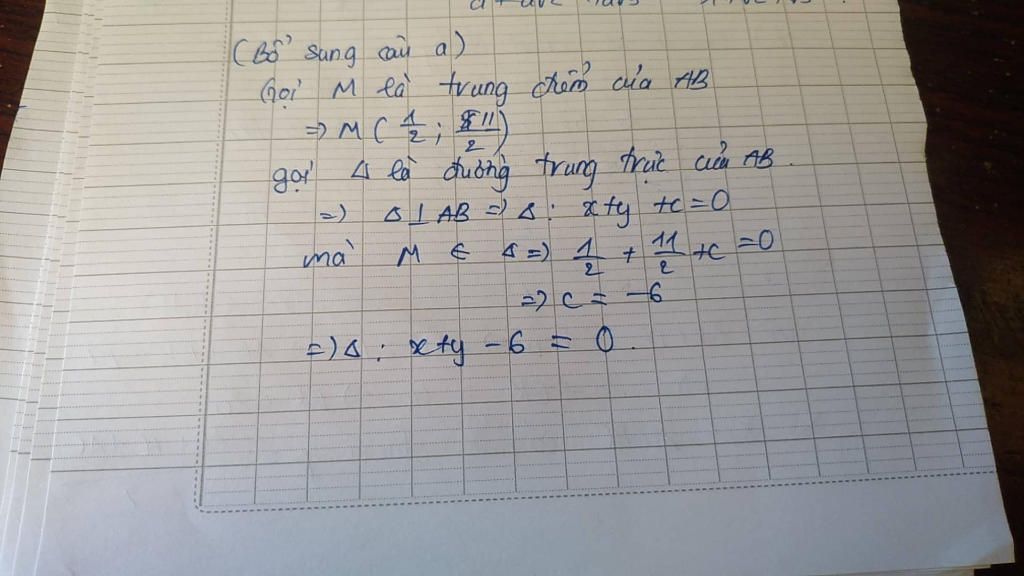 (Bổ sung câu a)
Gọi M là trung điểm của AB
=> M ( 1/2 ; 11/2 )
gọi Δ là đường trung trực của AB.
=> Δ ⊥ AB => Δ : x+y +c=0
mà M ∈ Δ => 1/2 + 11/2 +c =0
=> c = -6
=> Δ : x+y - 6 = 0.